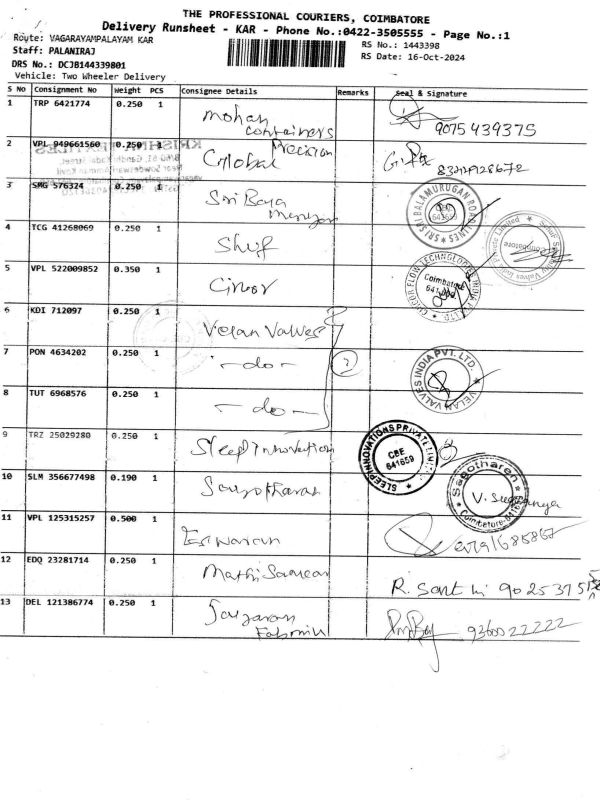 THE PROFESSIONAL COURIERS, COIMBATORE
Delivery Runsheet - KAR - Phone No.:0422-3505555 - Page No.:1
Route: VAGARAYAMPALAYAM KAR
RS No.: 1443398
Staff: PALANIRAJ
RS Date: 16-Oct-2024
DRS No.: DCJB144339801
Vehicle: Two Wheeler Delivery
S No Consignment No Weight PCS Consignee Details Remarks Seal & Signature
1 TRP 6421774 0.250 1 Mohan
Containers 9075439375
2 VPL 949661560 0.250 1 Global Precision
3 SMG 576324 0.250 1 Sri Bala
SRI SRI BALAMURUGAN ROAD LINES
4 TCG 41268069 0.250 1 Shuf
5 VPL 522009852 0.350 1
FLOW TECHNOLOGIES INDIA PVT. LTD.
Coimbatore
6 KDI 712097 0.250 1 Velan Valves
7 PON 4634202 0.250 1 -do-
VELAN VALVES INDIA PVT. LTD.
8 TUT 6968576 0.250 1 -do-
9 TRZ 25029280 0.250 1 Sleep Innovation
SLEEPINNOVATIONS PRIVATE LIMITED
CBE
641659
10 SLM 356677498 0.190 1
Sagotharen
Coimbatore-641659
11 VPL 125315257 0.500 1 Eswaran
12 EDQ 23281714 0.250 1
R. Santhi
13 DEL 121386774 0.250 1
9360022222